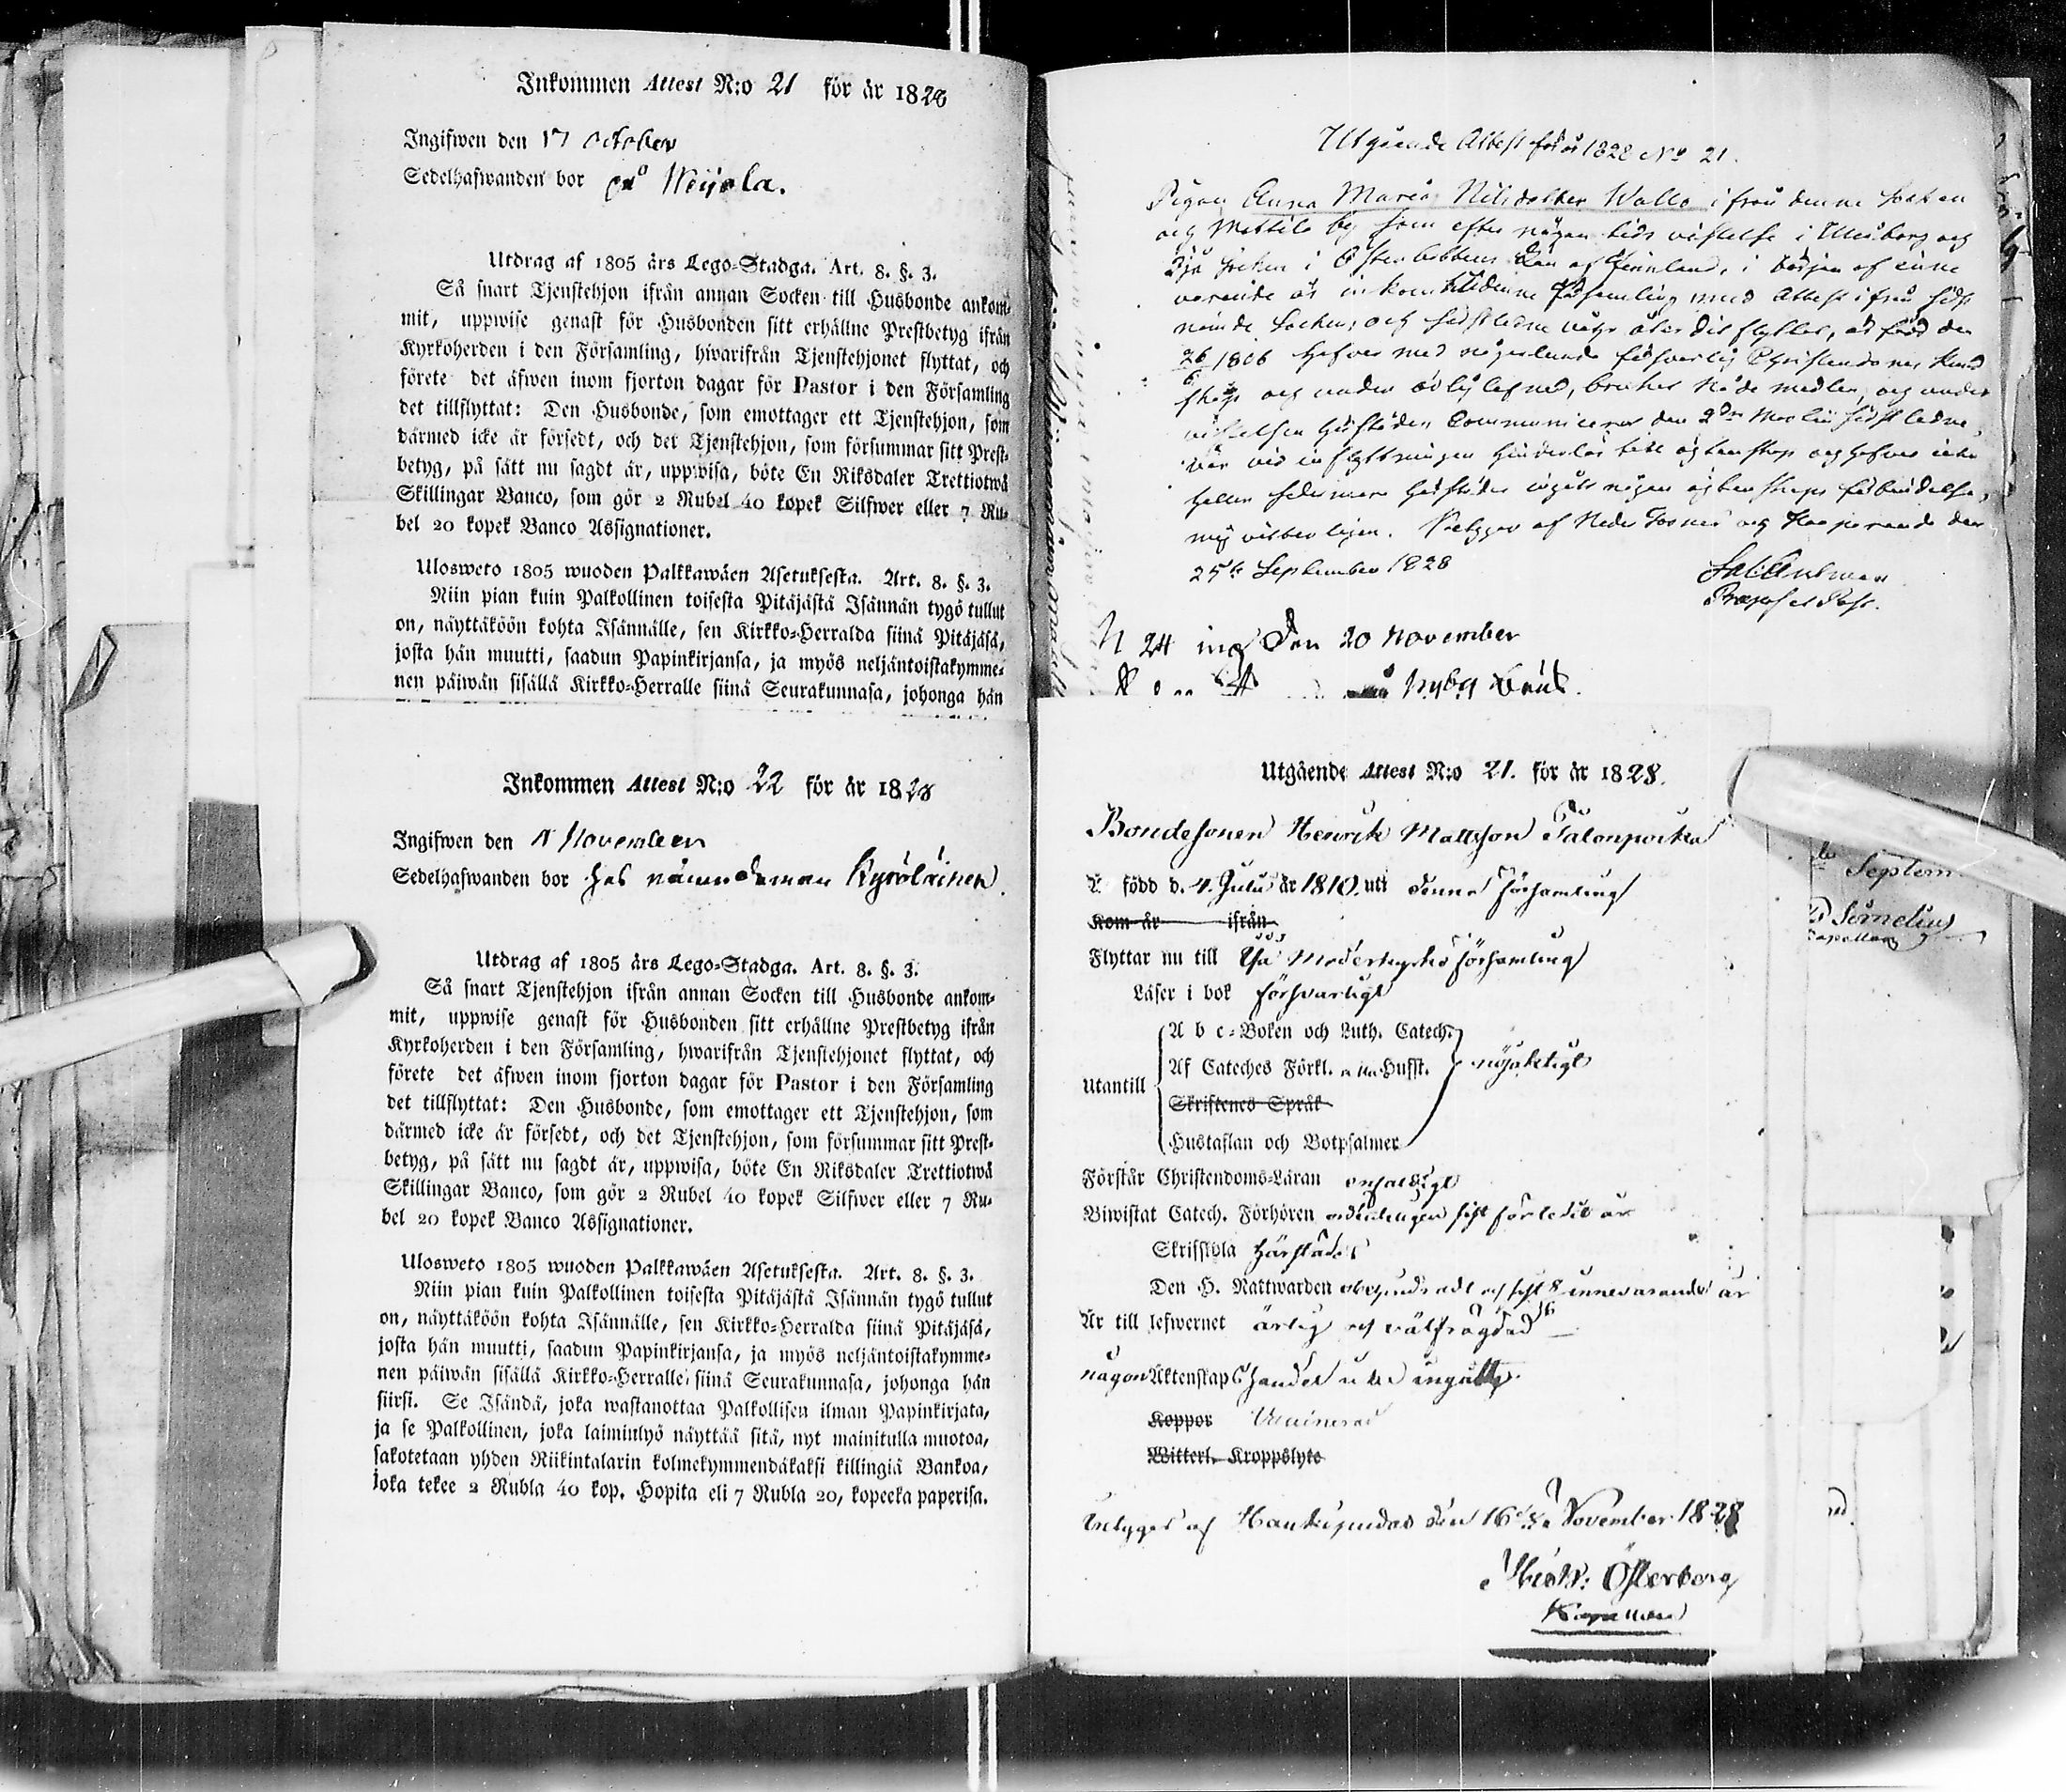 Inkommen Attest N:o 21 för år 1828
Ingifwen den 17 October
Sedelhafwanden bor på Weijola.
Utdrag af 1805 års Lego-Stadga. Art. 8. §. 3.
Så snart Tjenstehjon ifrån annan Socken till Husbonde ankom-
mit, uppwise genast för Husbonden sitt erhållne Prestbetyg ifrån
Kyrkoherden i den Församling, hwarifrån Tjenstehjonet flyttat, och
förete det äfwen inom fjorton dagar för Pastor i den Församling
det tillflyttat: Den Husbonde, som emottager ett Tjenstehjon, som
därmed icke är försedt, och det Tjenstehjon, som försummar sitt Prest-
betyg, på sätt nu sagdt är, uppwisa, böte En Riksdaler Trettiotwå
Skillingar Banco, som gör 2 Rubel 40 kopek Silfwer eller 7 Ru-
bel 20 kopek Banco Assignationer.
Ulosweto 1805 wuoden Palkkawäen Asetuksesta. Art. 8. §. 3.
Niin pian kuin Palkollinen toisesta Pitäjästä Isännän tygö tullut
on, näyttäköön kohta Isännälle, sen Kirkko-Herralda siinä Pitäjäsä,
josta hän muutti, saadun Papinkirjansa, ja myös neljäntoistakymme-
nen päiwän sisällä Kirkko-Herralle siinä Seurakunnasa, johonga hän
Inkommen Attest N:o 22 för år 1828
Ingifwen den November
Sedelhafwanden bor hos nämndeman Kyröläinen.
Utdrag af 1805 års Lego-Stadga. Art. 8. §. 3.
Så snart Tjenstehjon ifrån annan Socken till Husbonde ankom-
mit, uppwise genast för Husbonden sitt erhållne Prestbetyg ifrån
Kyrkoherden i den Församling, hwarifrån Tjenstehjonet flyttat, och
förete det äfwen inom fjorton dagar för Pastor i den Församling
det tillflyttat: Den Husbonde, som emottager ett Tjenstehjon, som
därmed icke är försedt, och det Tjenstehjon, som försummar sitt Prest-
betyg, på sätt nu sagdt är, uppwisa, böte En Riksdaler Trettiotwå
Skillingar Banco, som gör 2 Rubel 40 kopek Silfwer eller 7 Ru-
bel 20 kopek Banco Assignationer.
Ulosweto 1805 wuoden Palkkawäen Asetuksesta. Art. 8. §. 3.
Niin pian kuin Palkollinen toisesta Pitäjästä Isännän tygö tullut
on, näyttäköön kohta Isännälle, sen Kirkko-Herralda siinä Pitäjäsä,
josta hän muutti, saadun Papinkirjansa, ja myös neljäntoistakymme-
nen päiwän sisällä Kirkko-Herralle siinä Seurakunnasa, johonga hän
siirsi. Se Isändä, joka wastanottaa Palkollisen ilman Papinkirjata,
ja se Palkollinen, joka laiminlyö näyttää sitä, nyt mainitulla muotoa,
sakotetaan yhden Riikintalarin kolmekymmendäkaksi killingiä Bankoa,
joka tekee 2 Rubla 40 kop. Hopita eli 7 Rubla 20, kopecka paperisa.
Utgående Attest för år 1828 No 21.
Pigan Anna Maria Nilsdotter Wallo ifrån denne Socken
och Mattila by som efter någon tids vistelse i Uleåborg och
Ijo Socken i Österbottens Län af Finnland, i början af inne
varande år inkom till denne Församling med Attest ifrån sidst
nämde Socken, och åter dit flyttar, är född den
26/6 1806 hafver med någorlunda försvarlig Christendoms kund
skap och under ärlig lefnad, brukat Nåde medlen, och under
vistelsen härstädes Communicerat den 2dre sidstledne,
var vid inflyttningen hinderlös till ägtenskap och hafver icke
heller sedermera härstädes ingått någon ägtenskaps förbindelse,
mig vitterligen. Betygar af Neder Torneå och Haaparanda den
25te September 1828
Præpos et Past.
N 24 ing Den 20 November
på Nyby
Utgående Attest N:o 21. för år 1828.
Bondesonen Henrik Mattsson Talonpoika
Är född d. 4 Julii år 1810. uti denna församling
Kom år ifrån
Flyttar nu till Ijå Moderkyrko församling
Läser i bok försvarligt
Utantill
A b c-Boken och Luth. Catech.
Af Cateches Förkl. Hufst. nöjaktigt
Skriftenes Språk
Hustaflan och Botpsalmer
Förstår Christendoms-Läran enfaldigt
Biwistat Catech. Förhören ordenteligen sist förledit år
Skriftskola härstädes
Den H. Nattwarden obehindradt och sist innevarande år
Är till lefwernet ärlig och välfrägdad
någon Äktenskaps handel icke ingått.
Koppor Vaccinerad
Witterl. Kroppslyte
Betygas af Haukipudas den 16de November 1828
Henr: Österberg
Kapellan
Septem